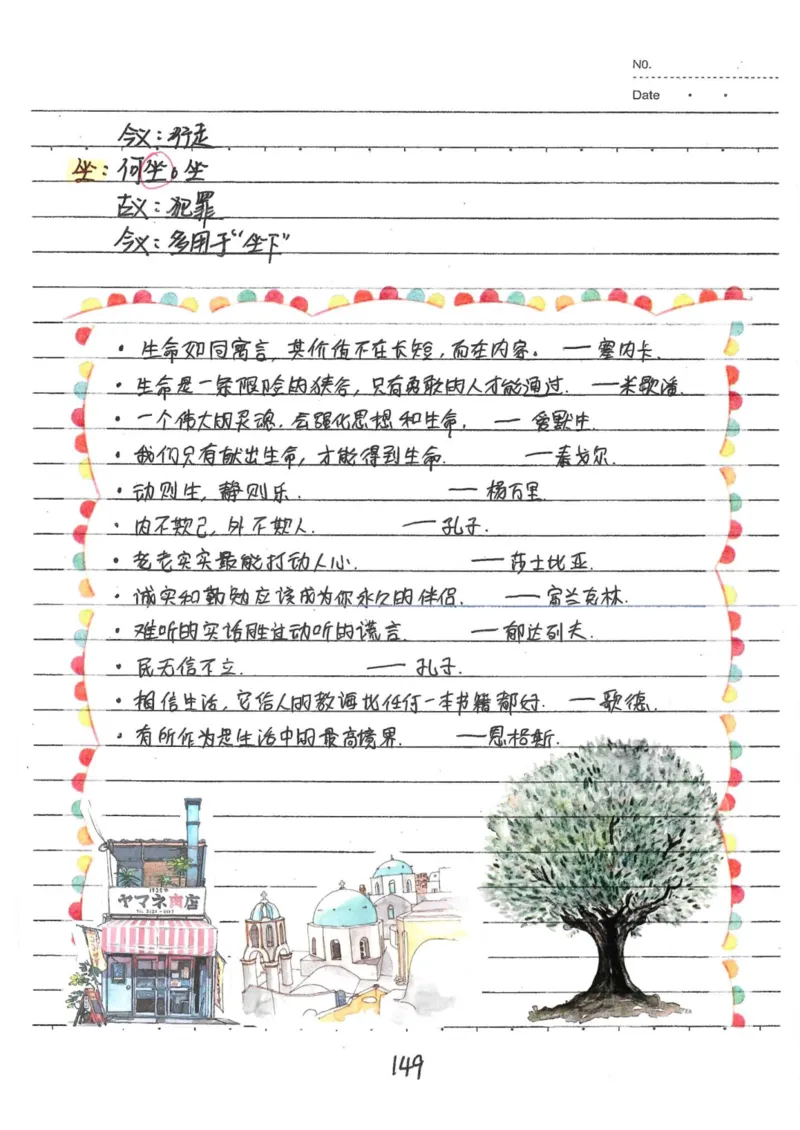 NO.
Date
今义：行走
坐：何坐。坐
古义：犯罪
今义：多用于“坐下”
· 生命如同寓言，其价值不在长短，而在内容。 — 塞内卡.
· 生命是一条艰险的狭谷，只有勇敢的人才能通过. — 米歇潘.
· 一个伟大的灵魂，会强化思想和生命. — 爱默生.
· 我们只有献出生命，才能得到生命. — 泰戈尔.
· 动则生，静则乐. — 杨万里.
· 内不欺己，外不欺人. — 孔子.
· 老老实实最能打动人心. — 莎士比亚.
· 诚实和勤勉应该成为你永久的伴侣. — 富兰克林.
· 难听的实话胜过动听的谎言. — 郁达列夫.
· 民无信不立. — 孔子.
· 相信生活，它给人的教诲比任何一本书籍都好. — 歌德.
· 有所作为是生活中的最高境界. — 恩格斯.
ヤマネ肉店
149